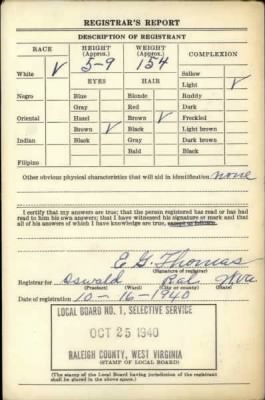 REGISTRAR'S REPORT
DESCRIPTION OF REGISTRANT
RACE HEIGHT (Approx.) WEIGHT (Approx.) COMPLEXION
5-9 154
White ✓ EYES HAIR Sallow
Light ✓
Negro Blue Blonde Ruddy
Gray Red Dark
Oriental Hazel Brown ✓ Freckled
Brown ✓ Black Light brown
Indian Black Gray Dark brown
Bald Black
Filipino
Other obvious physical characteristics that will aid in identification none
I certify that my answers are true; that the person registered has read or has had
read to him his own answers; that I have witnessed his signature or mark and that
all of his answers of which I have knowledge are true, except as follows:
E. G. Thomas
(Signature of registrar)
Registrar for Oswald Ral W.Va.
(Precinct) (Ward) (City or county) (State)
Date of registration 10-16-1940
LOCAL BOARD NO. 1, SELECTIVE SERVICE
OCT 25 1940
RALEIGH COUNTY, WEST VIRGINIA
(STAMP OF LOCAL BOARD)
(The stamp of the Local Board having jurisdiction of the registrant
shall be placed in the above space.)